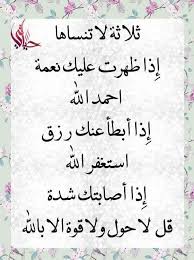 ثلاثة لا تنساها
إذا ظهرت عليك نعمة
احمد الله
إذا أبطأ عنك رزق
استغفر الله
إذا أصابتك شدة
قل لا حول ولا قوة الا بالله